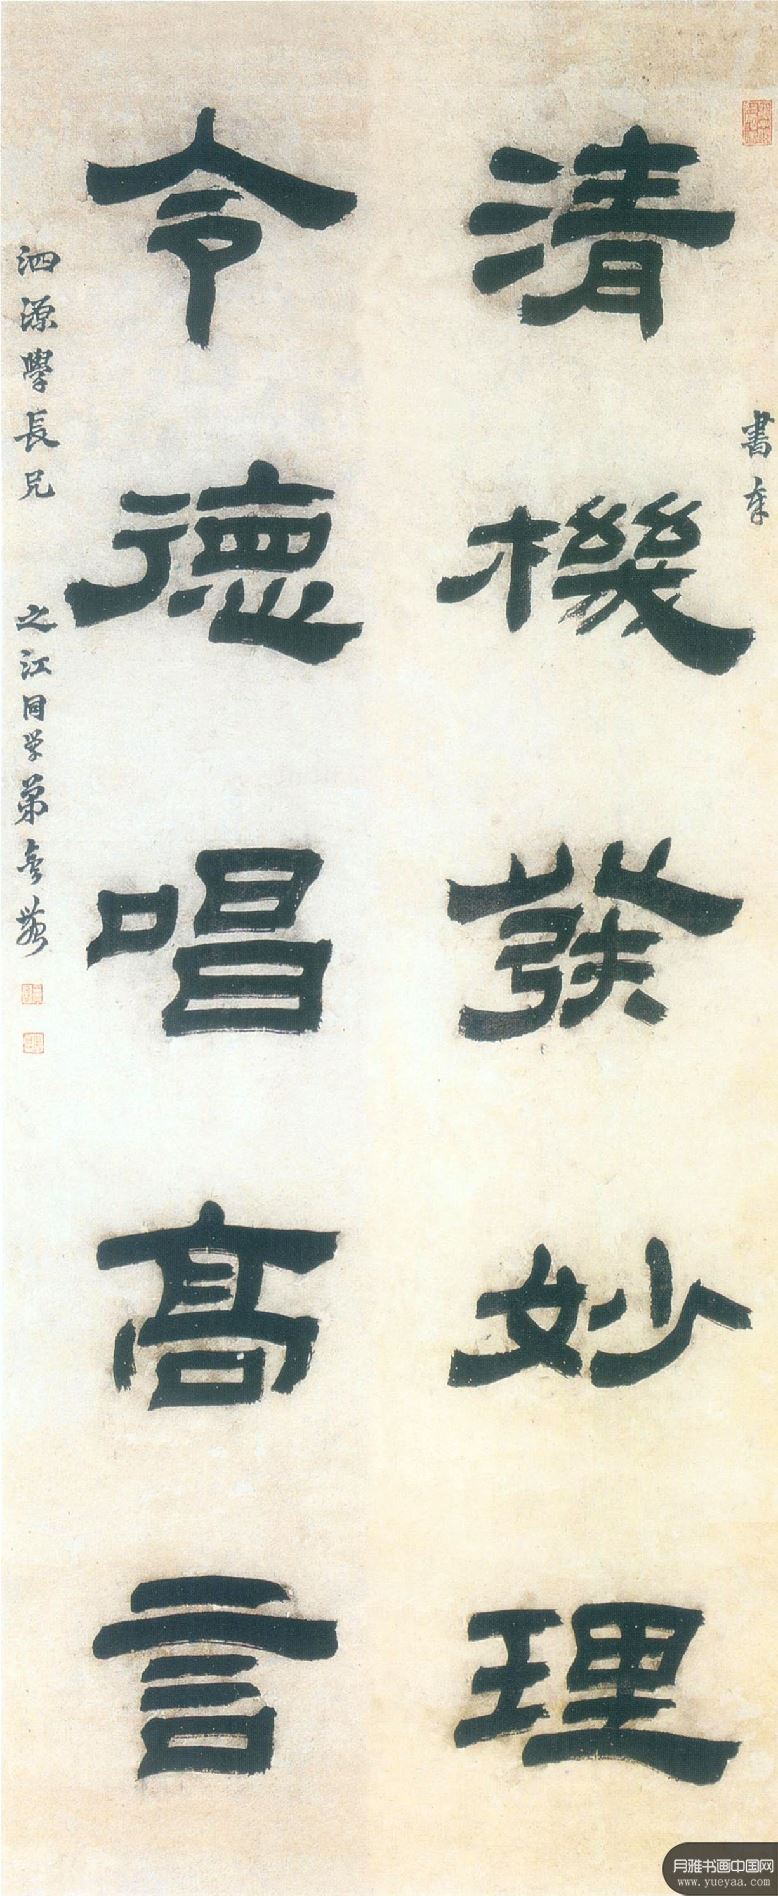 清機發妙理
書奉
令德唱高言
泗源學長兄
之江同学弟
月雅书画中国网
www.yueyaa.com